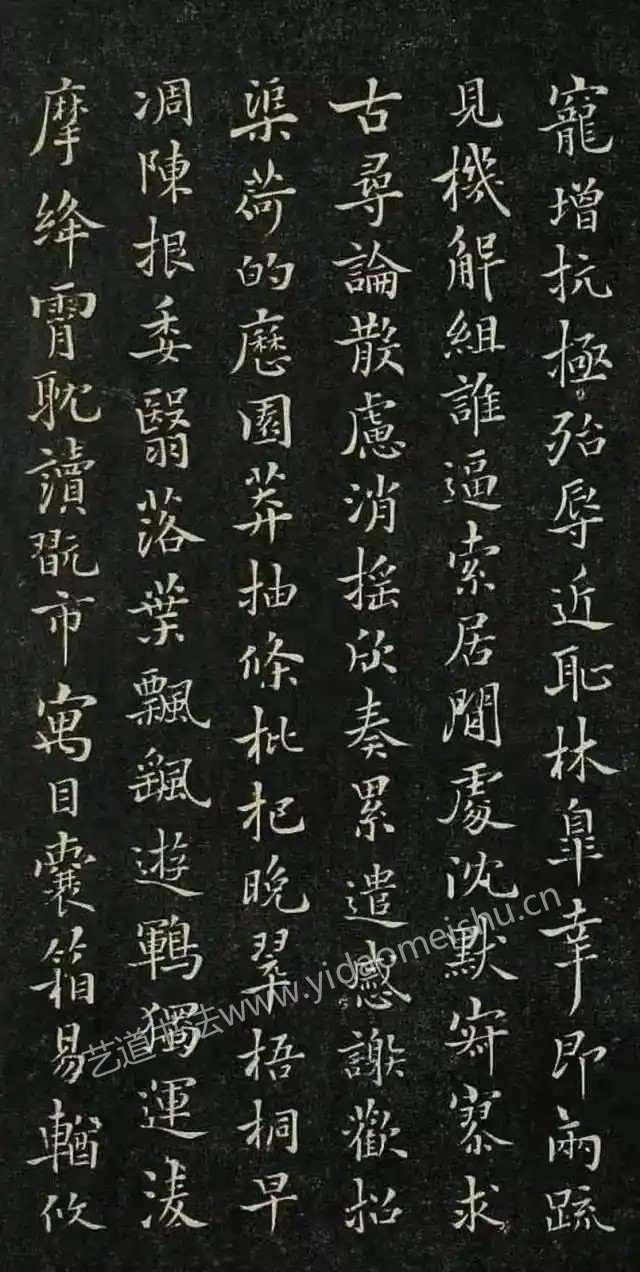 寵增抗極殆辱近恥林皐幸即兩疏
見機解組誰逼索居閒處沈默寂寥求
古尋論散慮消搖欣奏累遣慼謝歡招
渠荷的歷園莽抽條枇杷晚翠梧桐早
凋陳根委翳落葉飄颻遊鵾獨運淩
摩絳霄耽讀翫市寓目囊箱易輶攸
艺道书法www.yidaomeishu.cn